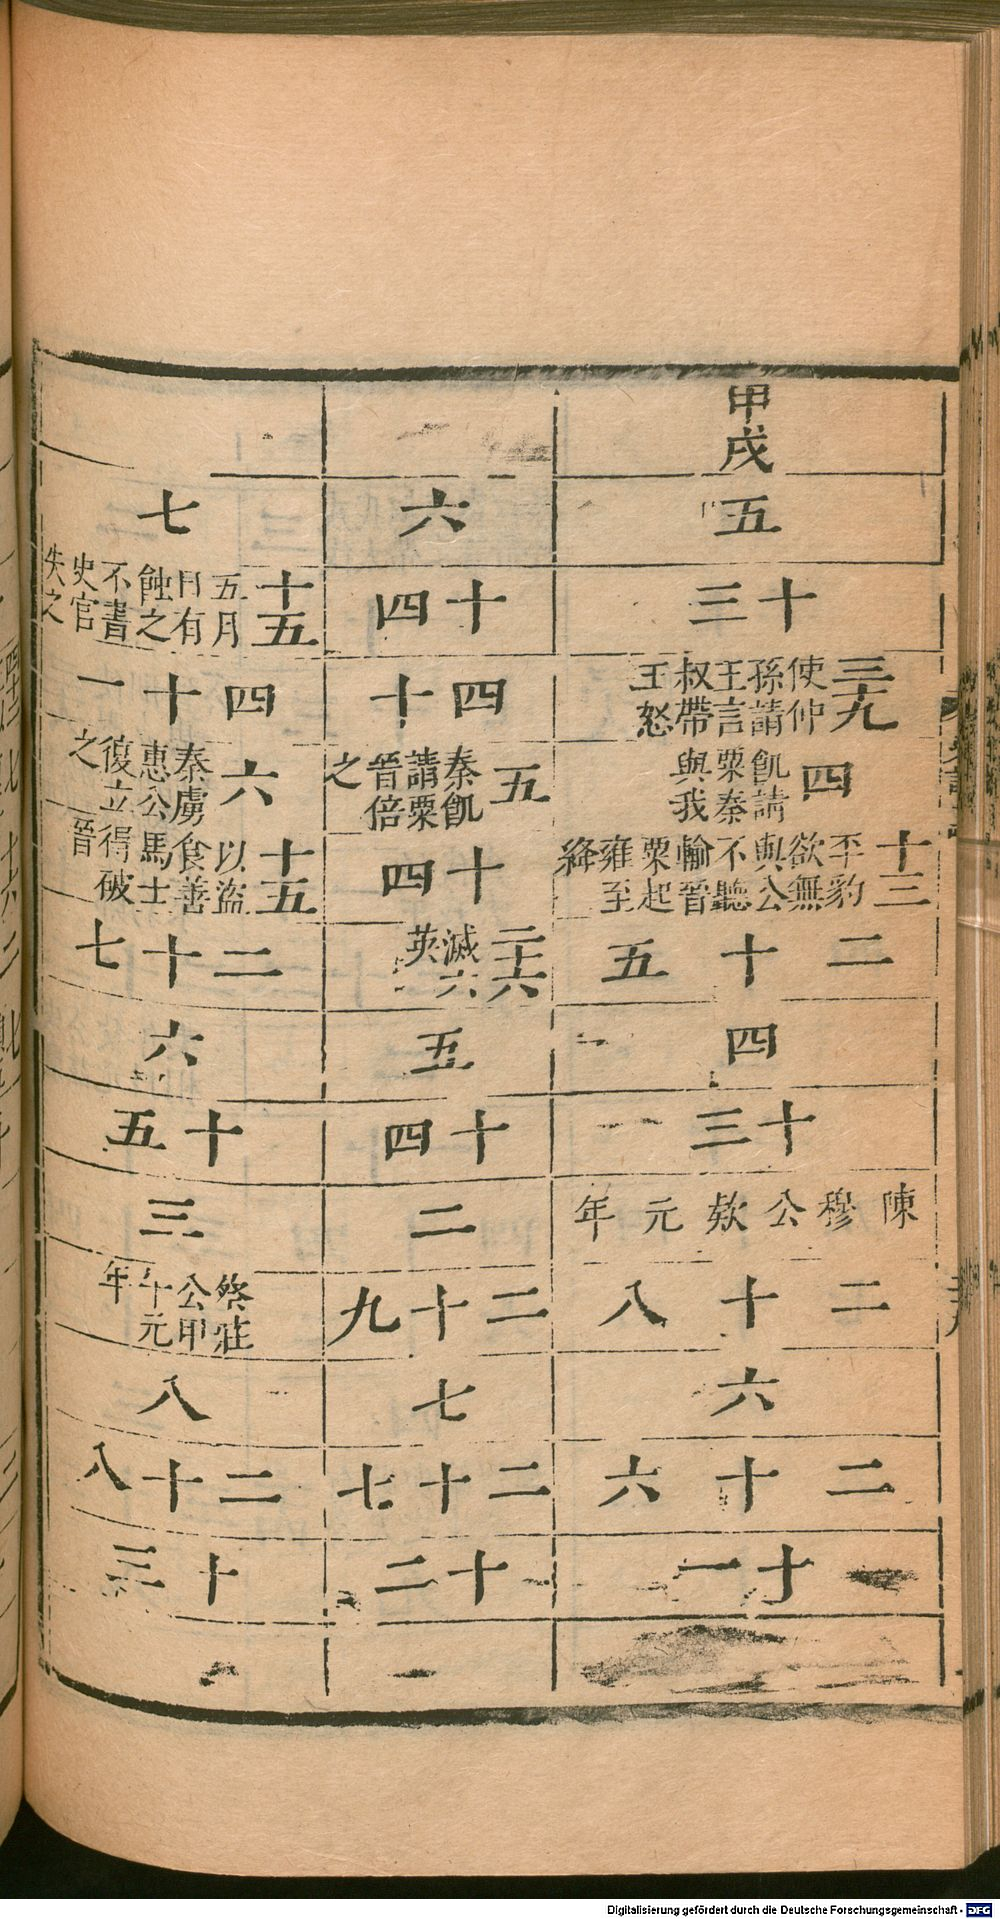 甲戌
五
十三
三九 使仲孫請王言叔帶王怒
四 飢請粟秦與我
十三 丕豹欲無與公不聽輸晉粟起雍至絳
二十五
四
十三
陳穆公欵元年
二十八
六
二十六
十一
六
十四
四十
五 秦飢請粟晉倍之
十四
二十六 滅六英
五
十四
二
二十九
七
二十七
十二
七
十五 五月日有蝕之不書史官失之
四十一
六 秦虜惠公復立之
十五 以盜食善馬士得破晉
二十七
六
十五
三
蔡莊公甲午元年
八
二十八
十三
Digitalisierung gefördert durch die Deutsche Forschungsgemeinschaft - DFG